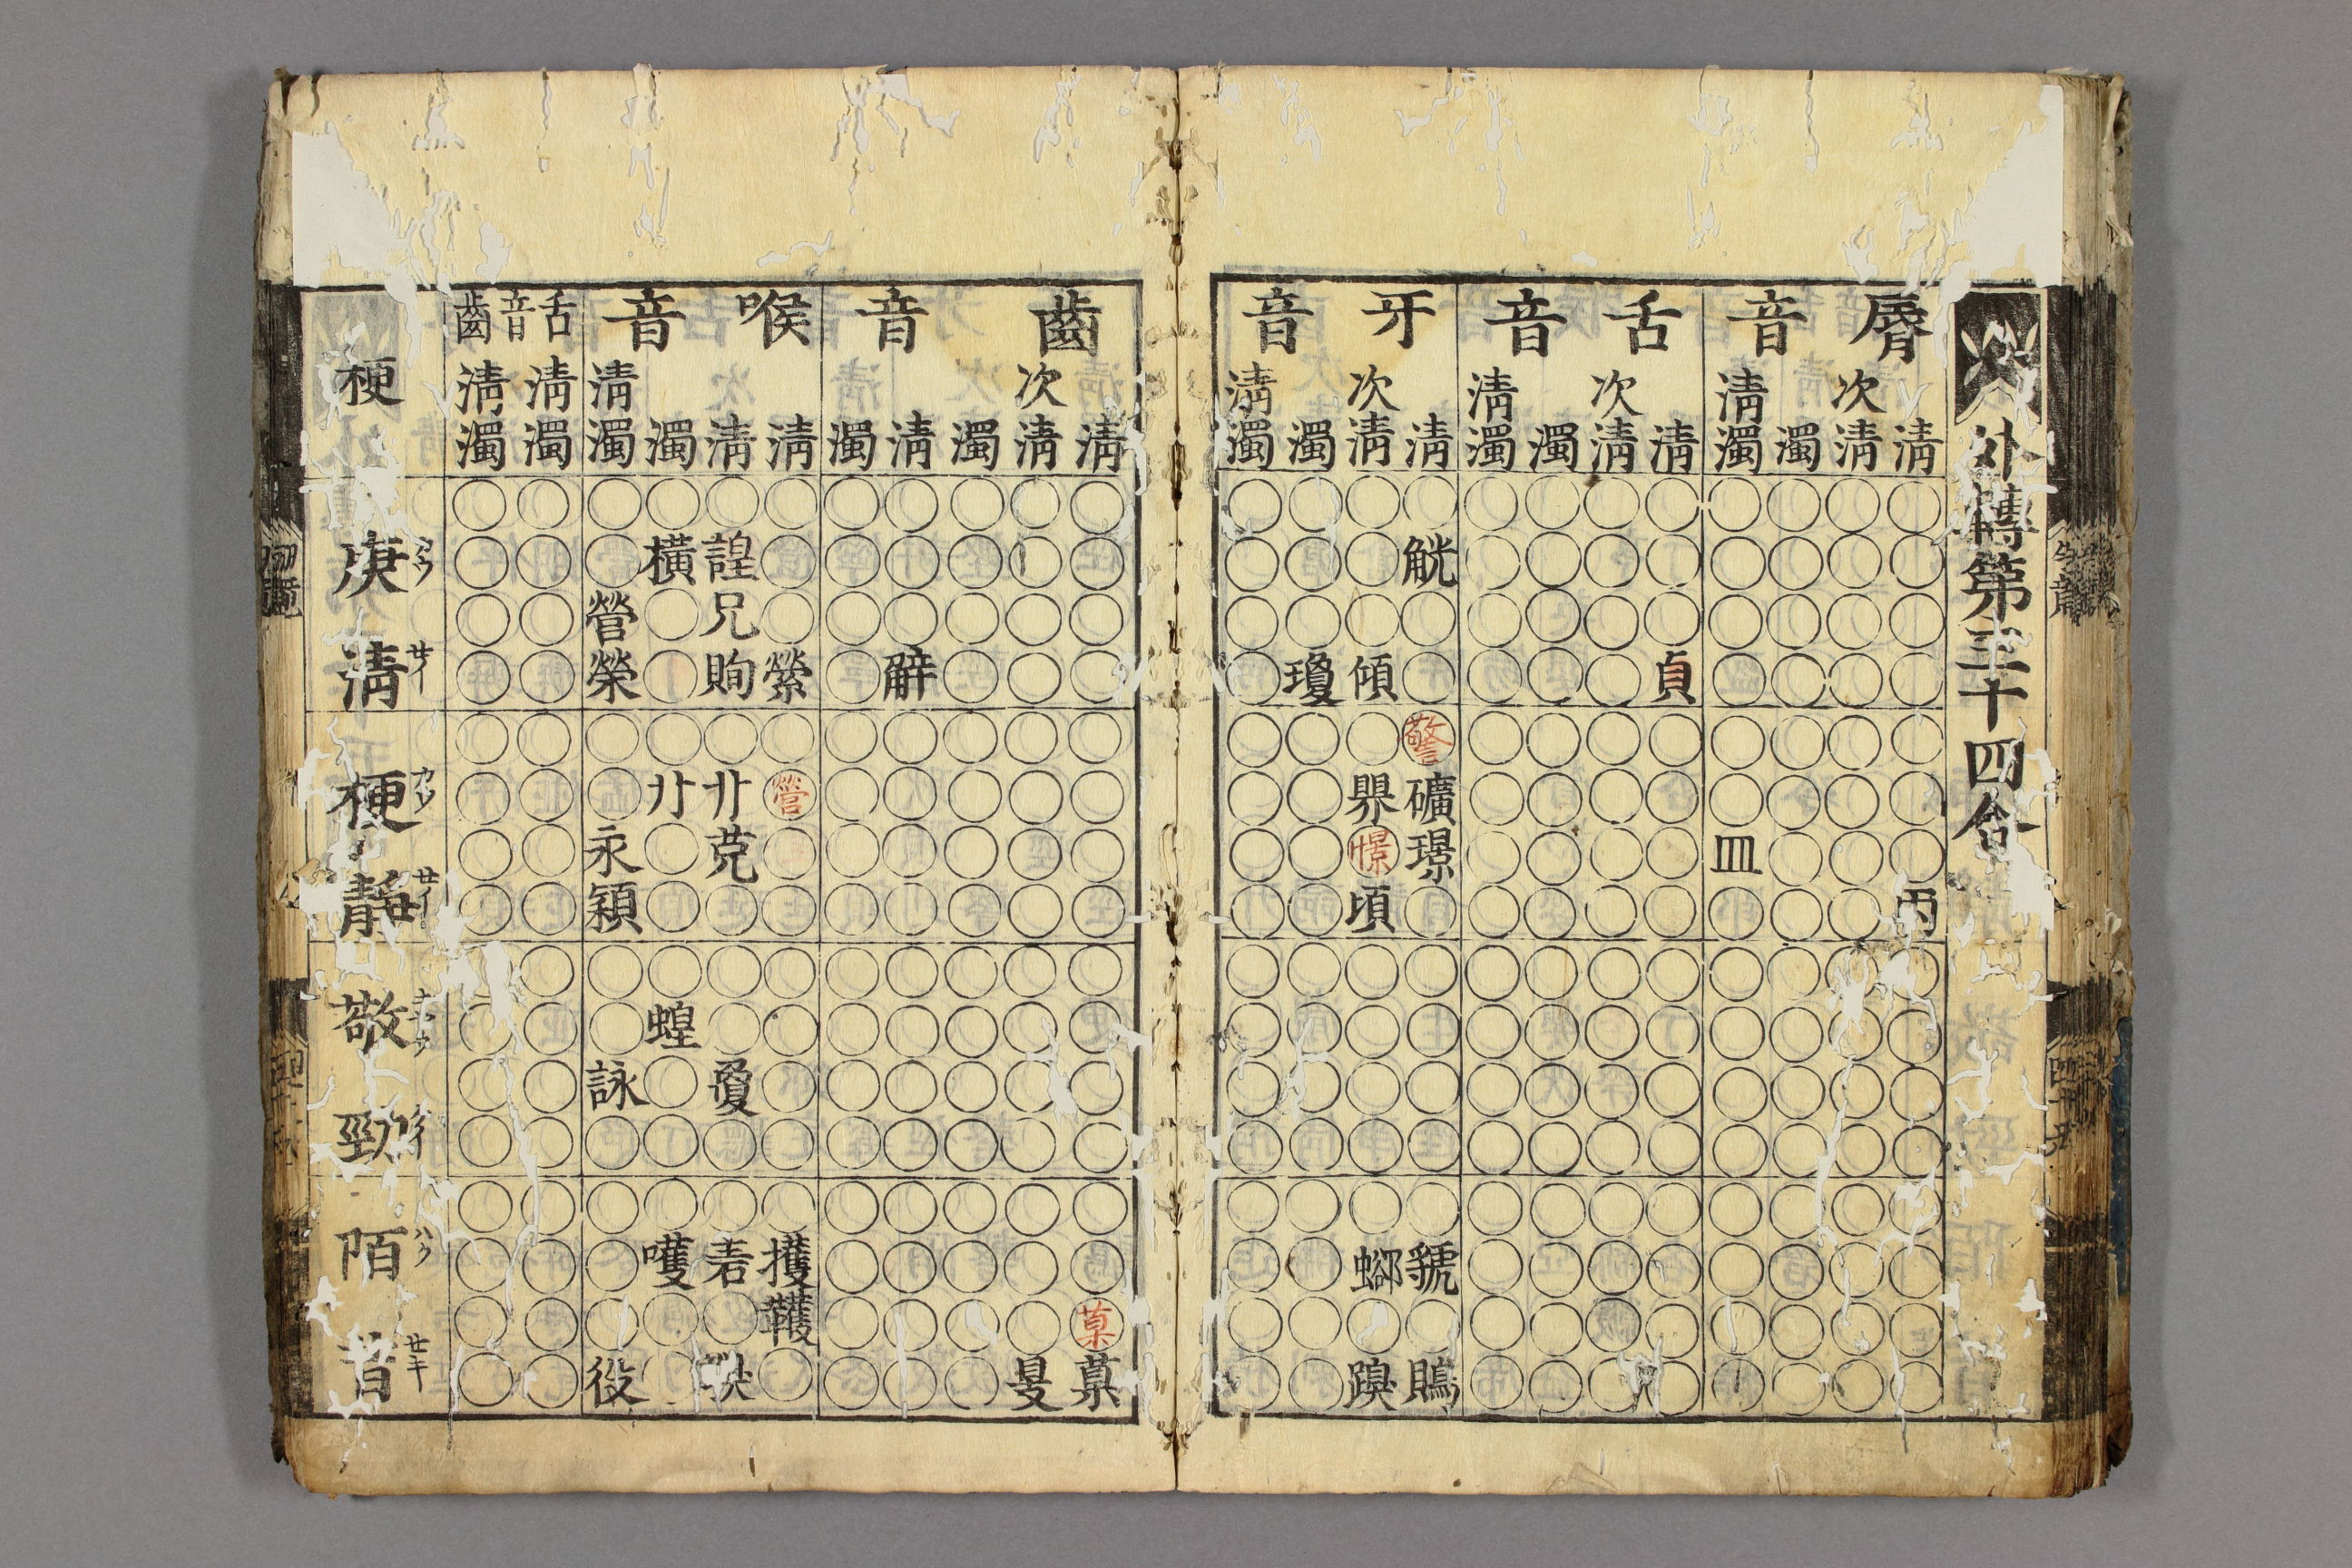 外轉第三十四合
脣音 舌音 牙音
清 次清 濁 清濁 清 次清 濁 清濁 清 次清 濁 清濁
觥
貞 傾 瓊
警
礦 界
皿 璟 憬
丙 頃
虢
鶪 躩
齒音 喉音 舌音齒
清 次清 濁 清 濁 清 次清 濁 清濁 清濁 清濁
梗
諻 橫 庚
兄 營
觪 縈 眴 榮 清
營 廾 梗
永
穎 靜
蝗 敬
詠
勁
擭 砉 嚄 陌
菓
役 昔